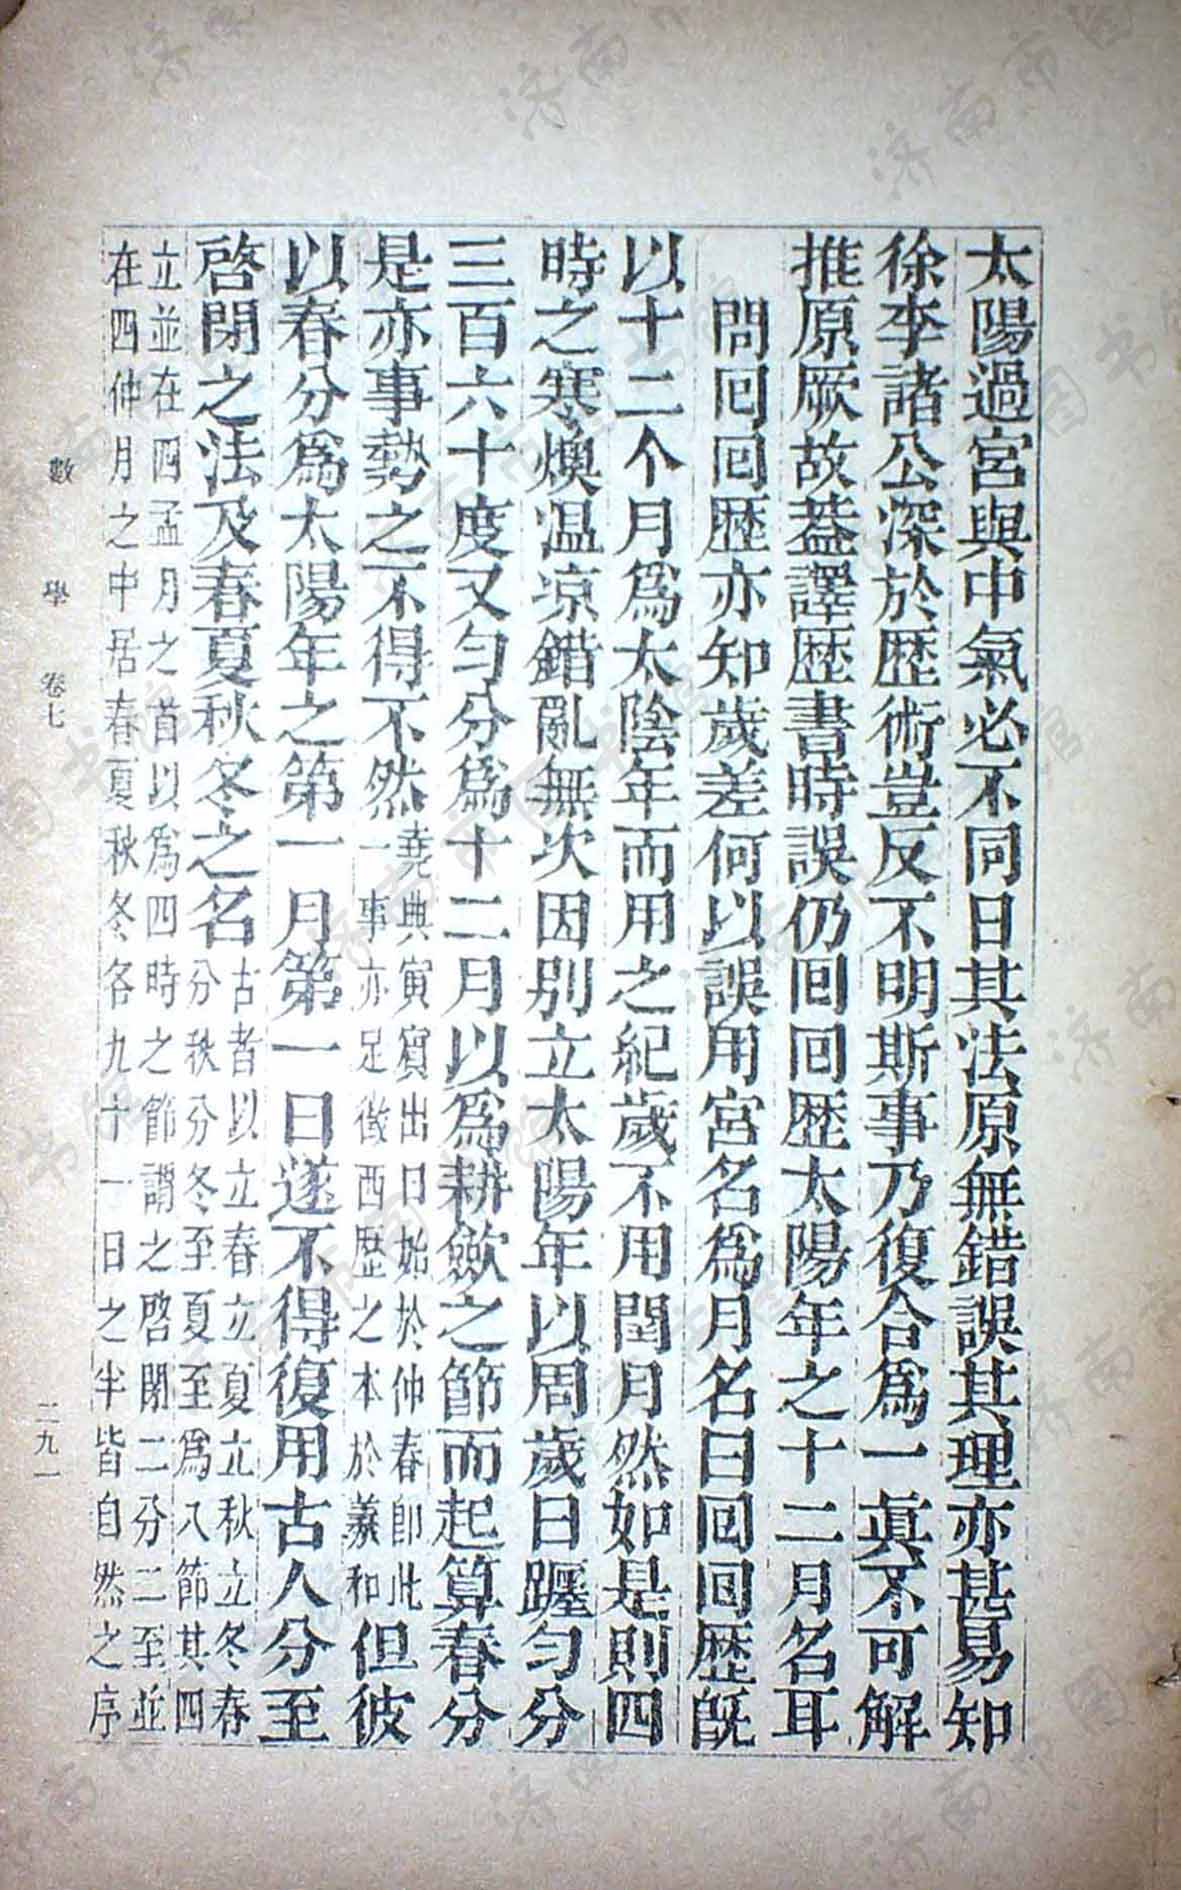 太陽過宮與中氣必不同日其法原無錯誤其理亦甚易知
徐李諸公深於歴術豈反不明斯事乃復合爲一眞不可解
推原厥故葢譯歴書時誤仍回回歴太陽年之十二月名耳
問回回歴亦知歲差何以誤用宮名爲月名曰回回歴旣
以十二个月爲太陰年而用之紀歲不用閏月然如是則四
時之寒燠温凉錯亂無次因别立太陽年以周歲日躔匀分
三百六十度又匀分爲十二月以爲耕斂之節而起算春分
是亦事勢之不得不然
堯典寅賓出日始於仲春即此
一事亦足徵西歴之本於羲和
但彼
以春分爲太陽年之第一月第一日遂不得復用古人分至
啓閉之法及春夏秋冬之名
古者以立春立夏立秋立冬春
分秋分冬至夏至爲八節其四
立並在四孟月之首以爲四時之節謂之啓閉二分二至並
在四仲月之中居春夏秋冬各九十一日之半皆自然之序
數學 卷七 二九一